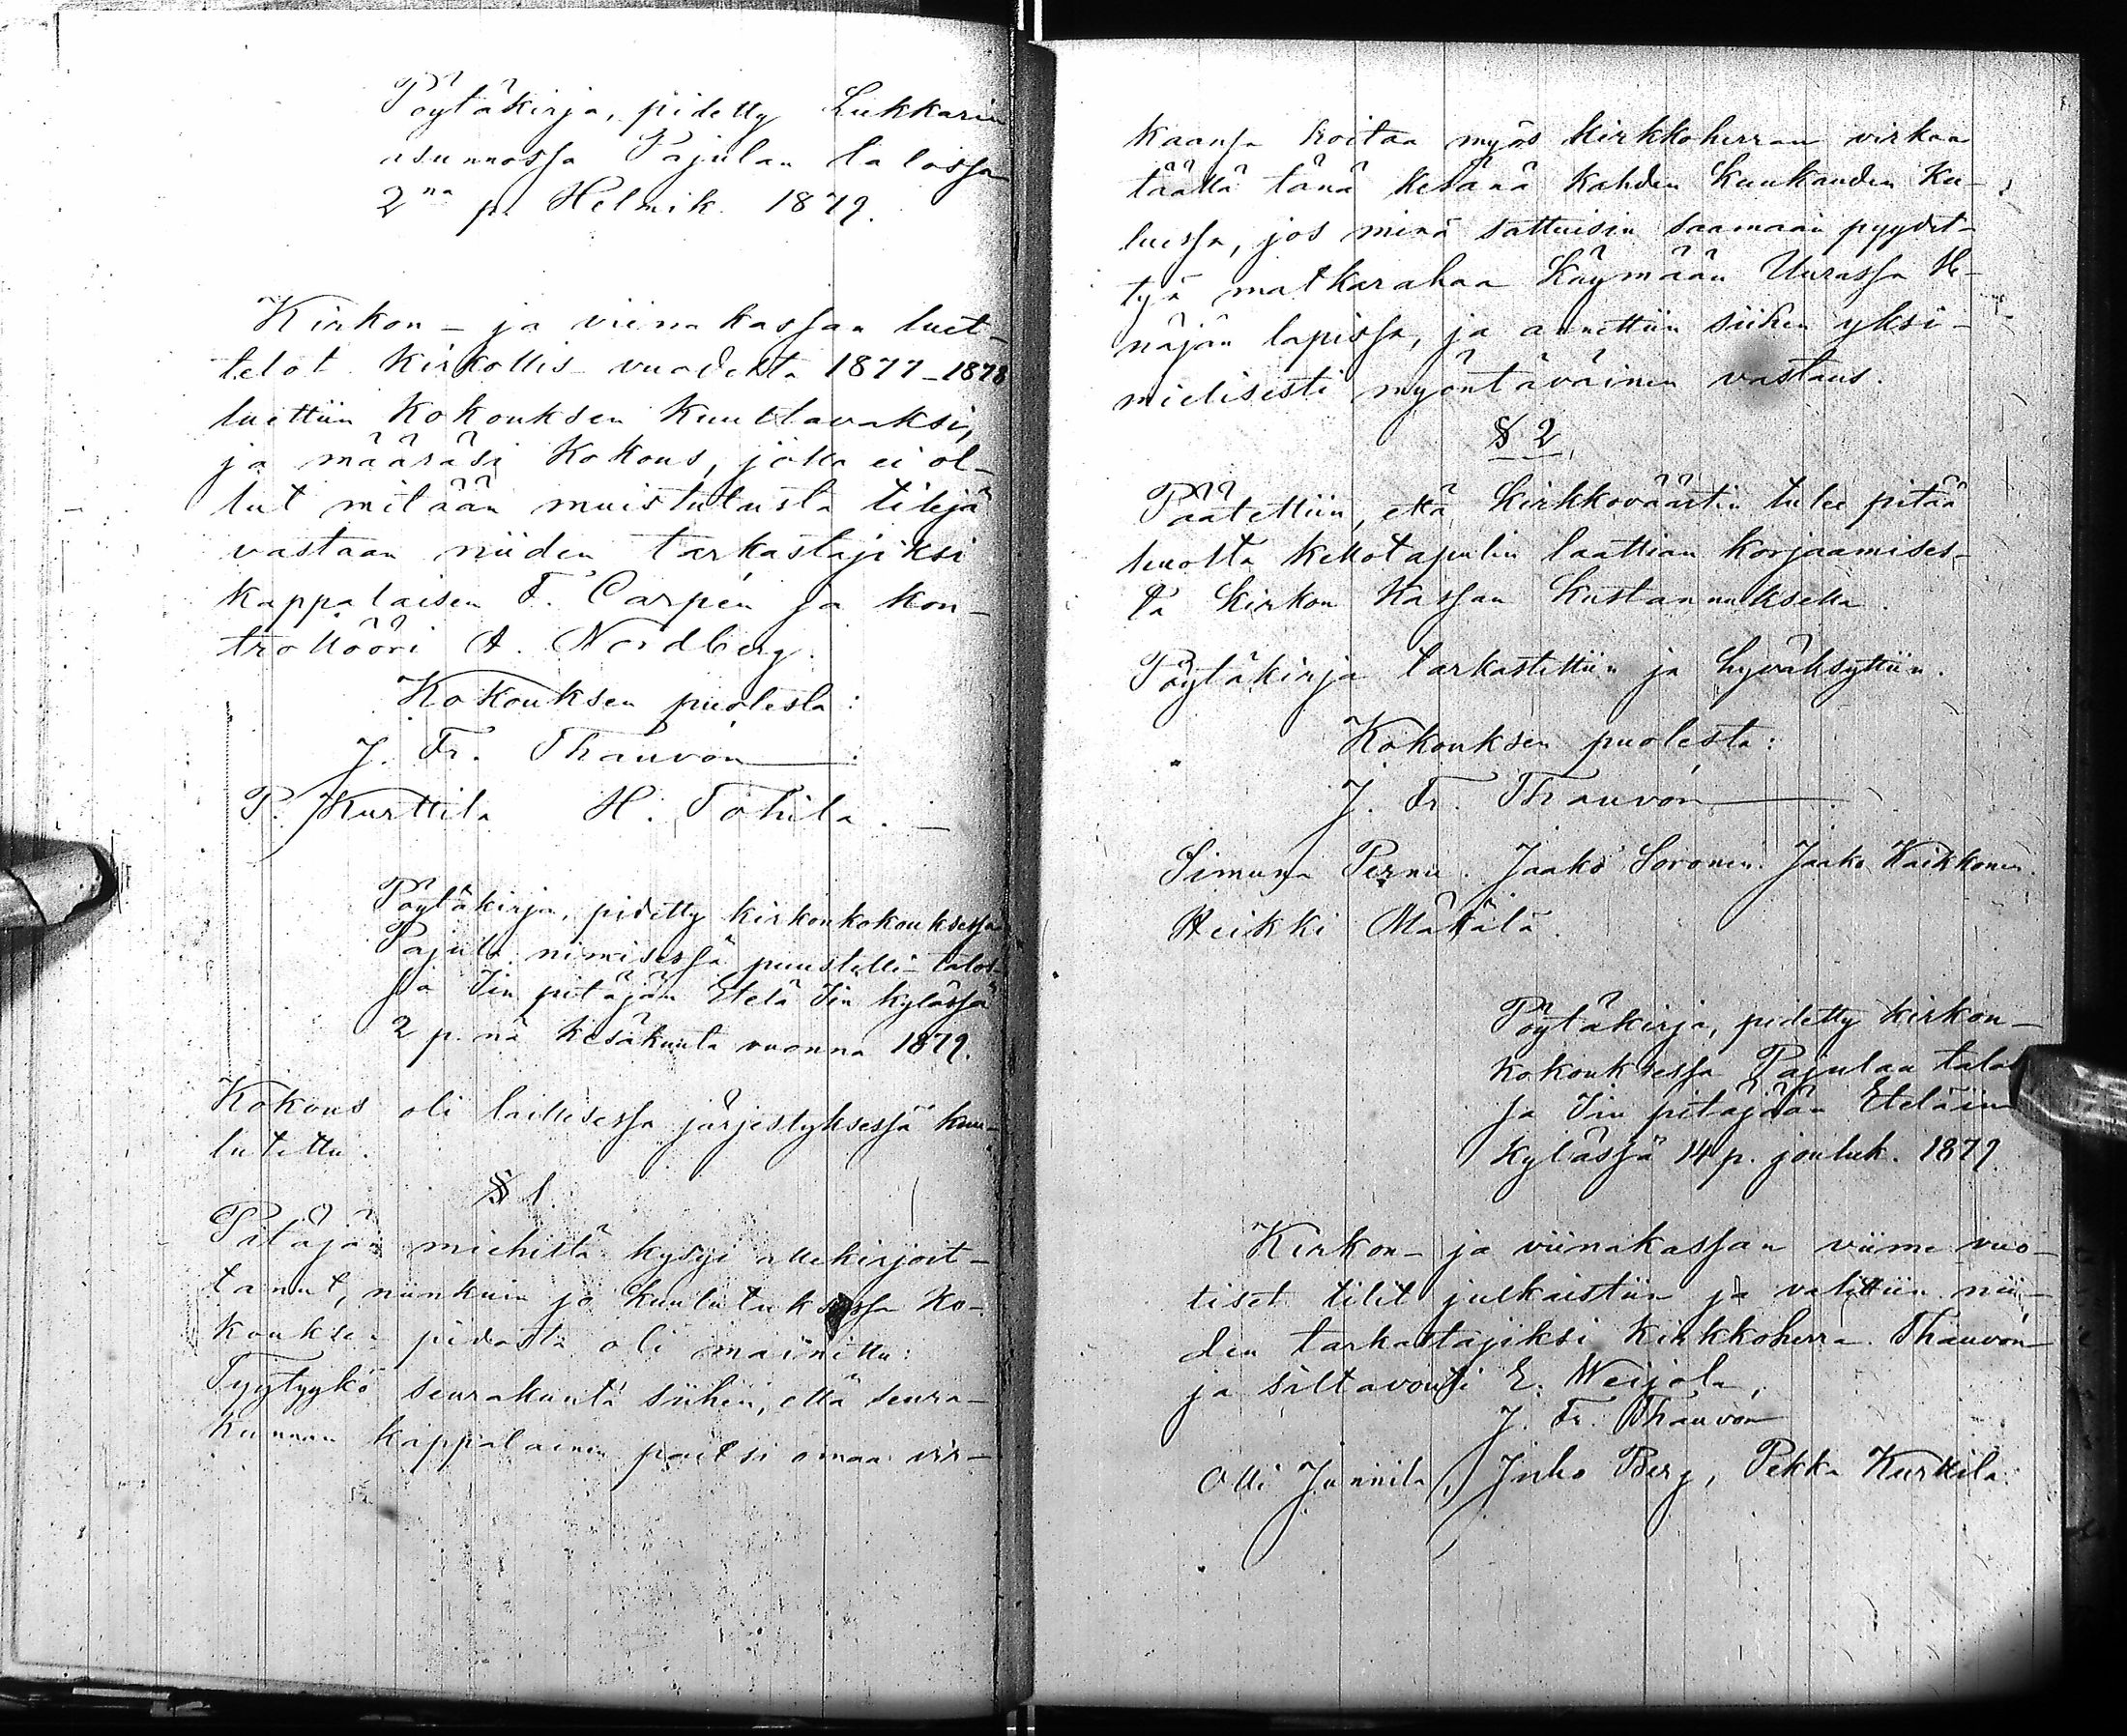 Pöytäkirja, pidetty Lukkarin
asunnossa Pajulan talossa
2na p. Helmik. 1879.
Kirkon- ja viinakassan luet-
telot kirkollis-vuodelta 1877-1878
luettiin Kokouksen kuultavaksi,
ja määräsi Kokous, jolla ei ol-
lut mitään muistutusta tilejä
vastaan niiden tarkastajiksi
kappalaisen F. Carpén ja kon-
trollööri A. Nordberg.
Kokouksen puolesta:
J. Fr. Thauvón
P. Kurttila H. Tohila.
Pöytäkirja, pidetty kirkonkokouksessa
Pajula nimisessä puustelli-talos-
sa Iin pitäjän Etelä Iin kylässä
2 p.nä Kesäkuuta vuonna 1879.
Kokous oli laillisessa järjestyksessä kuu-
lutettu.
§ 1.
Pitäjän miehiltä kysyi allekirjoit-
tanut, niinkuin jo kuulutuksessa Ko-
kouksen pidosta oli mainittu:
Tyytyykö seurakunta siihen, että seura-
kunnan kappalainen paitsi omaa vir-
kaansa hoitaa myös kirkkoherran virkaa
täällä tänä kesänä kahden kuukauden ku-
luessa, jos minä sattuisin saamaan pyydet-
tyä matkarahaa käymään Venäjän
näjän lapissa, ja annettiin siihen yksi-
mielisesti myöntäväinen vastaus.
§ 2.
Päätettiin, että Kirkkoväärtin tulee pitää
huolta kellotapulin laattian korjaamises-
ta Kirkon Kassan kustannuksella.
Pöytäkirja tarkastettiin ja hyväksyttiin.
Kokouksen puolesta:
J. Fr. Thauvón
Simuna Pernu. Jaako Soronen. Jaako Kaikkonen.
Heikki Mätälä.
Pöytäkirja, pidetty kirkon-
kokouksessa Pajulan talos
sa Iin pitäjään Eteläiin
kylässä 14 p. jouluk. 1879.
Kirkon- ja viinakassan viime vuo-
tiset tilit julkaistiin ja valittiin nii-
den tarkastajiksi Kirkkoherra Thauvón
ja siltavouti E. Weijola,
J. Fr. Thauvón
Olli Junnila, Juho Berg, Pekka Kurttila.